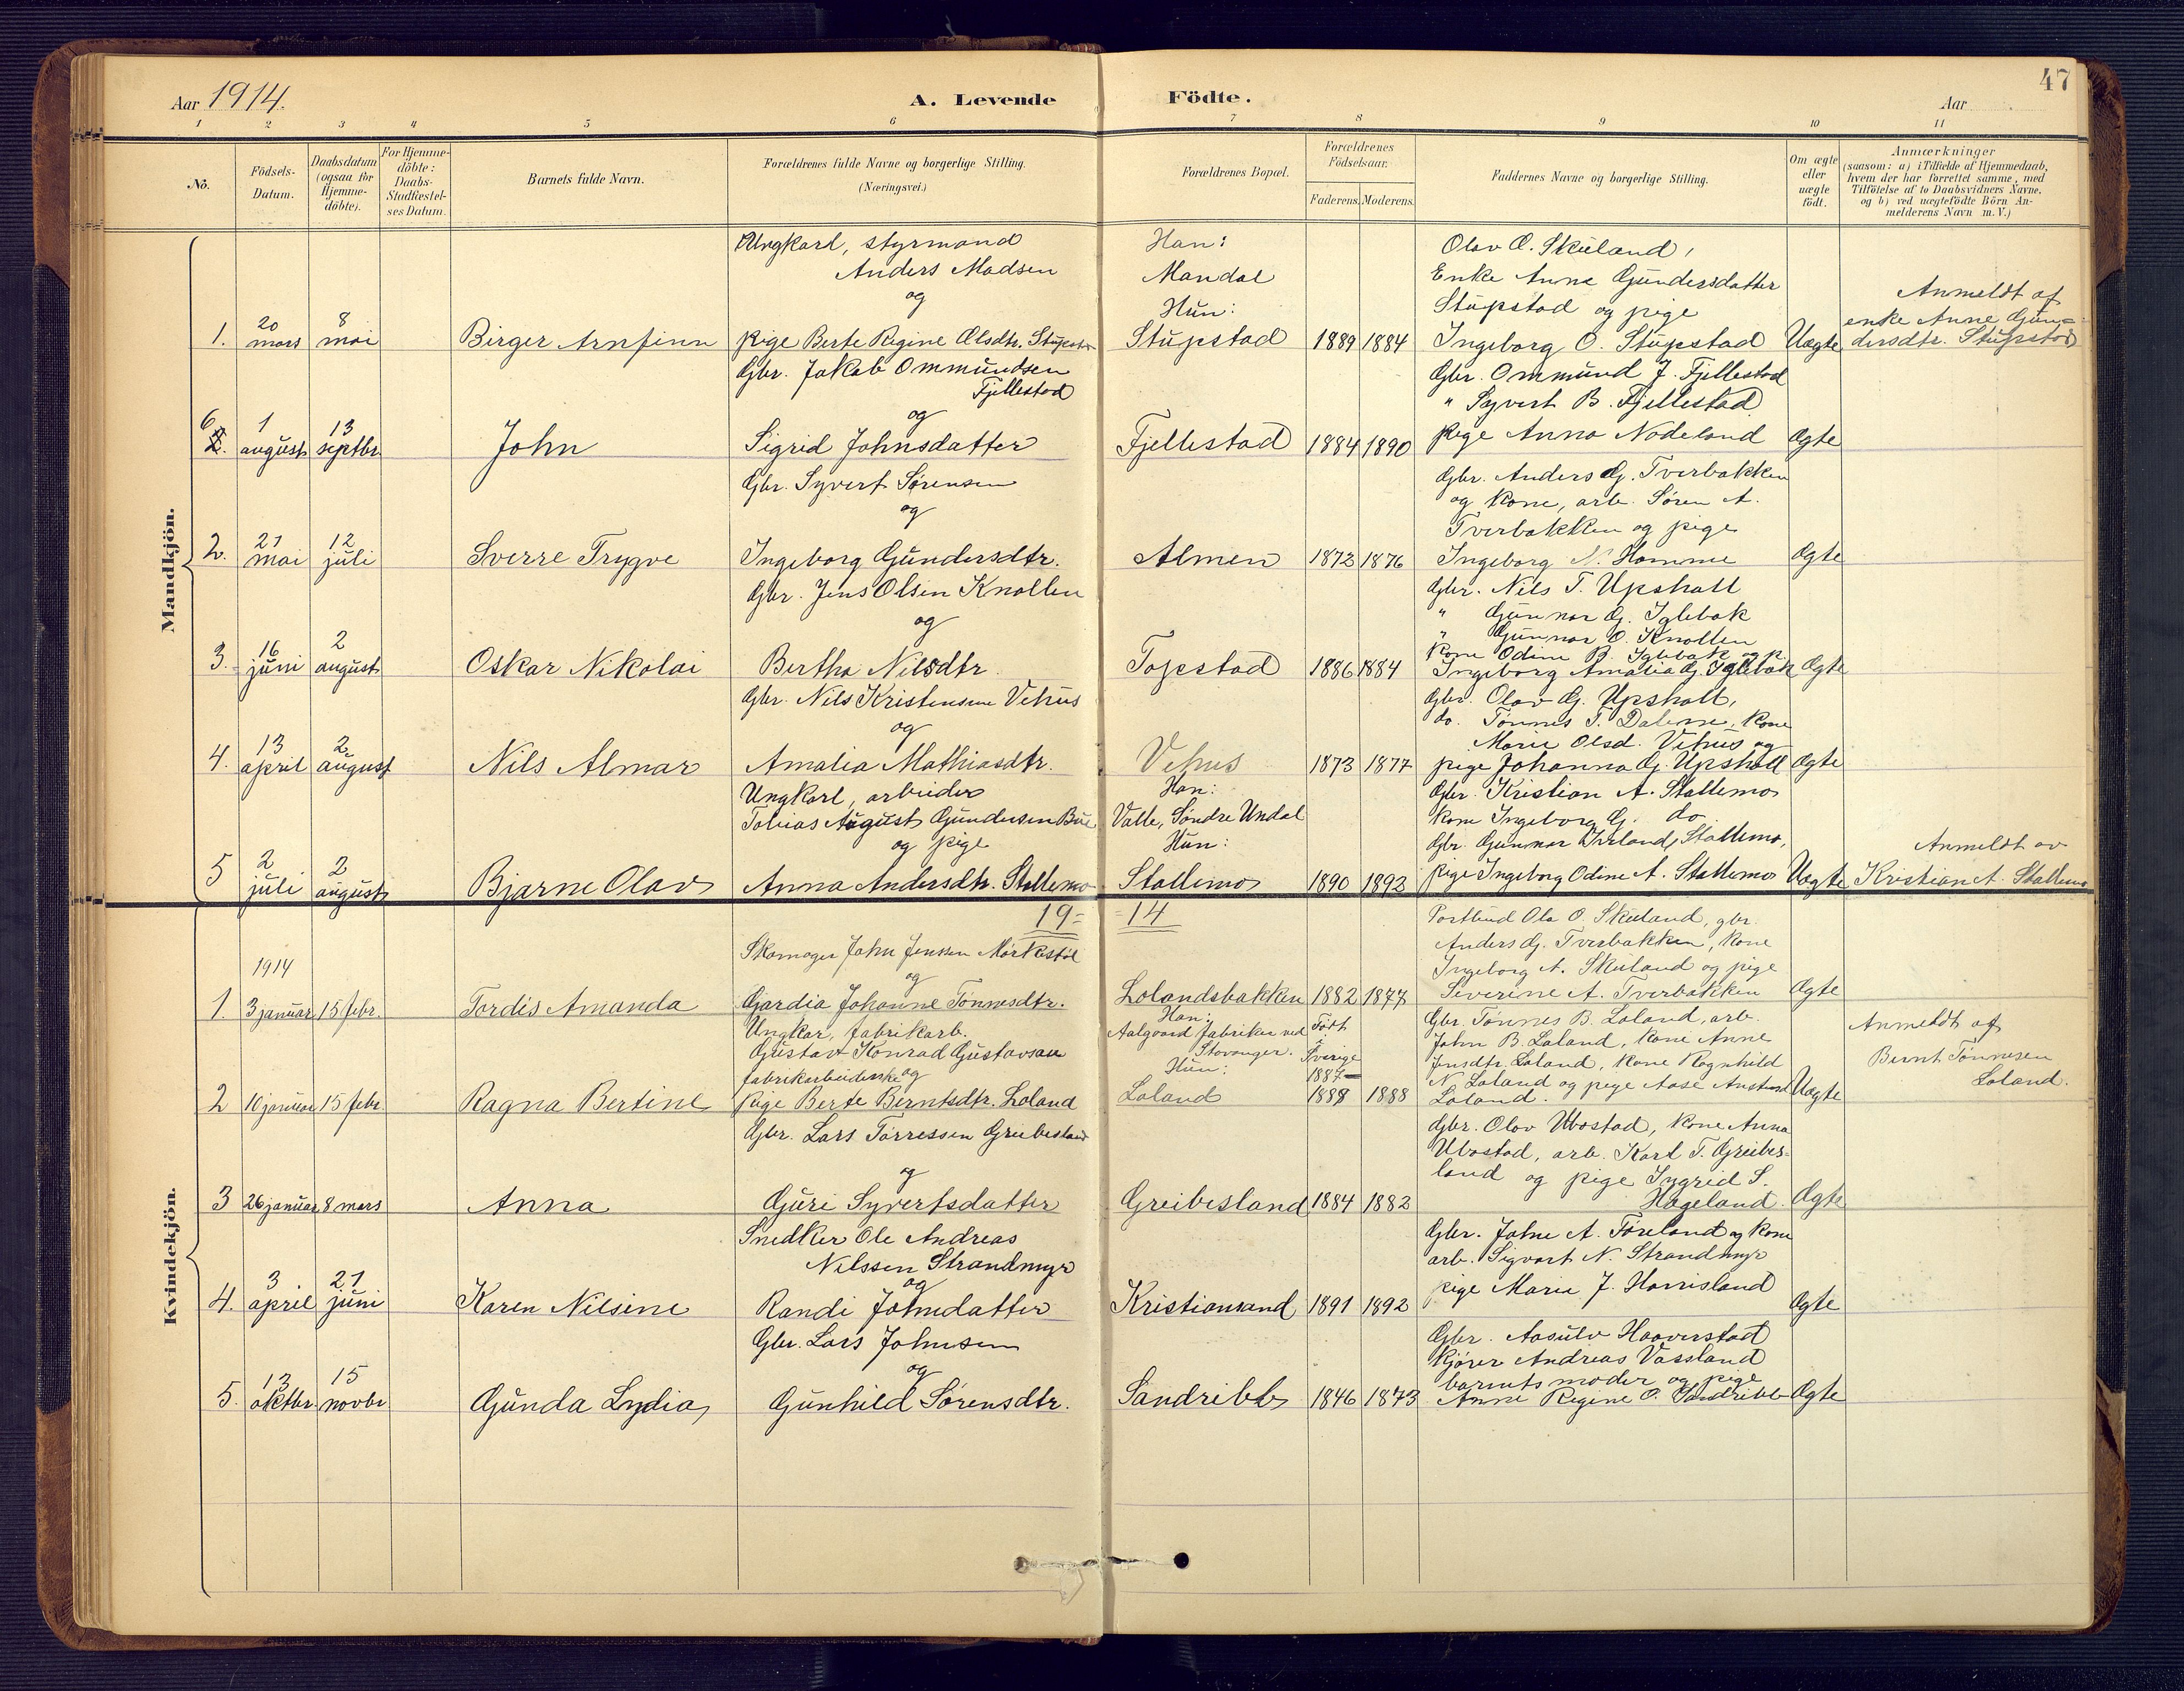 47
Aar 1914.
A. Levende Födte.
Aar
1 2 3 4 5 6 7 8 9 10 11
Nö.
Födsels-
Datum.
Daabsdatum
(ogsaa for
Hjemme-
döbte).
For Hjemme-
döbte:
Daabs-
Stadfæstel-
ses Datum.
Barnets fulde Navn.
Forældrenes fulde Navne og borgerlige Stilling.
(Næringsvei.)
Forældrenes Bopæl.
Forældrenes
Födselsaar.
Faderens. Moderens.
Faddernes Navne og borgerlige Stilling.
Om ægte
eller
uægte
födt.
Anmærkninger
(saasom: a) i Tilfælde af Hjemmedaab,
hvem der har forrettet samme, med
Tilföielse af to Daabsvidners Navne,
og b) ved uægtefödte Börn An-
melderens Navn m. V.)
Mandkjön.
1.
20
mars
8
mai
Birger Arnfinn
Ungkarl, styrmand
Anders Madsen
og
pige Berte Regine Olsdtr. Stupstad
Han:
Mandal
Hun:
Stupstad
1889 1884
Olav O. Skuland,
Enke Anne Gundersdatter
Stupstad og pige
Ingeborg O. Stupstad
Uægte
Anmeldt af
enke Anne Gun-
dersdtr. Stupstad
6
1
august
13
septbr.
John
Gbr. Jakob Ommundsen
Fjellestad
og
Sigrid Johnsdatter
Fjellestad
1884 1890
Gbr. Ommund J. Fjellestad
" Syvert B. Fjellestad
pige Anna Nodeland
Ægte
2.
21
mai
12
juli
Sverre Trygve
Gbr. Syvert Sørensen
og
Ingeborg Gundersdtr.
Almen
1872 1876
Gbr. Anders G. Tverbakken
og kone, arb. Søren A.
Tverbakken og pige
Ingeborg N. Homme
Ægte
3.
16
juni
2
august
Oskar Nikolai
Gbr. Jens Olsen Knollen
og
Bertha Nilsdtr.
Topstad
1886 1884
Gbr. Nils T. Upsholl
" Gunnar G. Iglebæk
" Gunnar O. Knollen
Kone Odine B. Iglebæk og p.
Ingeborg Amalia G. Iglebæk
Ægte
4.
13
april
2
august
Nils Almar
Gbr. Nils Kristensen Vehus
og
Amalia Mathiasdtr.
Vehus
1873 1877
Gbr. Olav G. Upsholl,
do. Tønnes T. Dalene, kone
Marie Olsd. Vehus og
pige Johanna G. Upsholl
Ægte
5
2
juli
2
august
Bjarne Olav
Ungkarl, arbeider
Tobias August Gundersen Bue
og pige
Anna Andersdtr. Stallemo
Han:
Valle, Søndre Undal
Hun:
Stallemo
1890 1892
Gbr. Kristian A. Stallemo
kone Ingeborg G. do
Gbr. Gunnar Øvland, Stallemo,
pige Ingeborg Odine A. Stallemo
Uægte
Anmeldt av
Kristian A. Stallemo
19= =14
Kvindekjön.
1914
1.
3 januar
15 febr.
Tordis Amanda
Skomager John Jensen Mørkestøl
og
Gjardia Johanne Tønnesdtr.
Lolandsbakken
1882 1877
Postbud Ola O. Skuland, gbr.
Anders G. Tverbakken, kone
Ingeborg A. Skuland og pige
Severine A. Tverbakken
Ægte
2
10 januar
15 febr.
Ragna Bertine
Ungkar, fabrikarb.
Gustav Konrad Gustavsen
fabrikarbeiderske og
pige Berte Berntsdtr. Loland
Han:
Aalgaard fabriker ved
Stavanger.
Hun:
Loland
Født
i
Sverige
1887
1888 1888
Gbr. Tønnes B. Loland, arb.
John B. Loland, kone Anne
Jensdtr. Loland, kone Ragnhild
N. Loland og pige Aase
Loland.
Uægte
Anmeldt af
Bernt Tønnesen
Loland.
3
26 januar
8 mars
Anna
Gbr. Lars Torressen Greibesland
og
Guri Syvertsdatter
Greibesland
1884 1882
Gbr. Olav Ubostad, kone Anna
Ubostad, arb. Karl T. Greibes-
land og pige Ingrid S.
Hageland.
Ægte
4.
3
april
21
juni
Karen Nilsine
Snedker Ole Andreas
Nilssen Strandmyr
og
Randi Johnsdatter
Kristiansand
1891 1892
Gbr. John A. Føreland og kone
arb. Sigvart N. Strandmyr
pige Maria J. Honnisland
Ægte
5.
13
oktbr.
15
novbr
Gunda Lydia
Gbr. Lars Johnsen
og
Gunhild Sørensdtr.
Sandribb
1846 1873
Gbr. Aasulv Haaverstad
Kjører Andreas Vassland
barnets moder og pige
Anne Regine O. Sandribb
Ægte